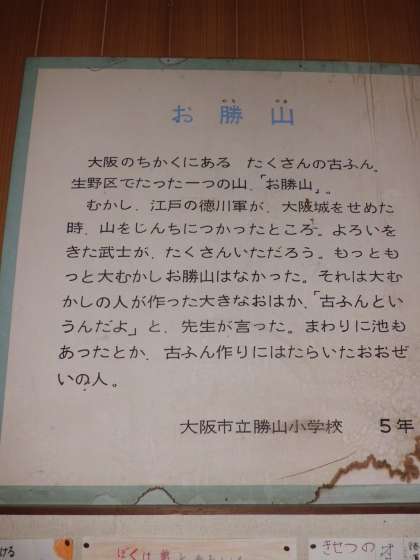 お勝山
大阪のちかくにある　たくさんの古ふん、
生野区でたった一つの山、「お勝山」。
むかし、江戸の徳川軍が、大阪城をせめた
時、山をじんちにつかったところ。よろいを
きた武士が、たくさんいただろう。もっとも
っと大むかしお勝山はなかった。それは大む
かしの人が作った大きなおはか、「古ふんとい
うんだよ」と、先生が言った。まわりに池も
あったとか、古ふん作りにはたらいたおおぜ
いの人。
大阪市立勝山小学校　5年
ぼくは
きせつの